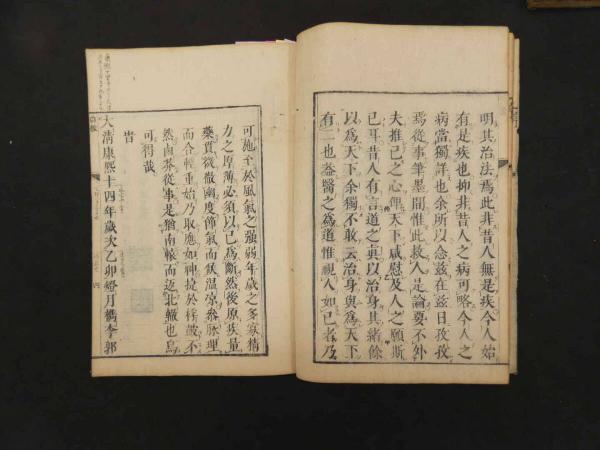 明其治法焉此非昔人無是疾今人始
有是疾也抑非昔人之病可略今人之
病當獨詳也余所以念茲在茲日孜孜
焉從事筆墨間惟此救人是論要不外
夫推己之心俾天下咸慰及人之願斯
已耳昔人有言道之真以治身其緒餘
以為天下余獨不敢云治身與為天下
有二也蓋醫之為道惟視人如己者乃
可施至於風氣之強弱年歲之多寡精
力之厚薄必須以己為斷然後原疾量
藥貫微徹幽度節氣而候溫涼參脈理
而合輕重始乃取應如神捷於桴皷不
然鹵莽從事是猶南轅而适北轍也烏
可得哉
昔
大清康熙十四年歲次乙卯 月檇李郭